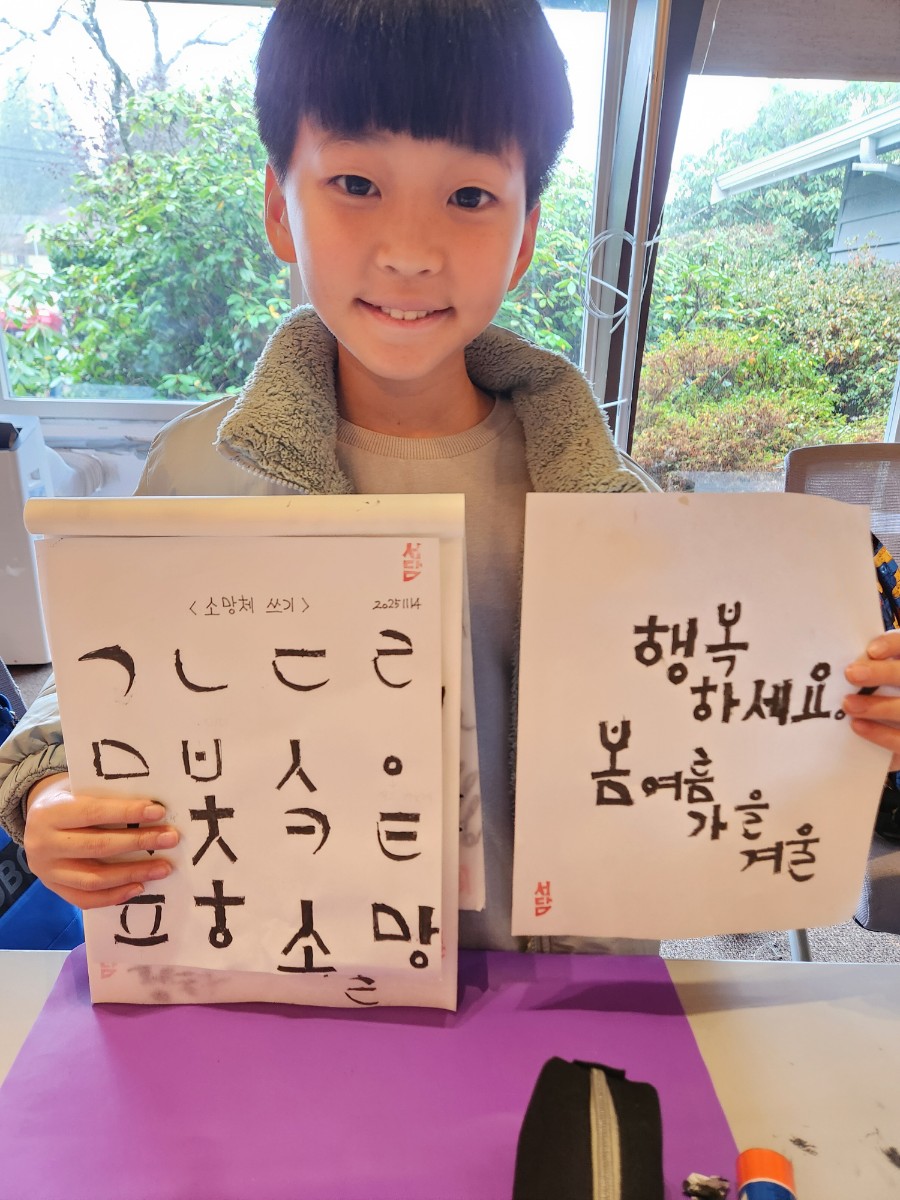 서담
<소망체 쓰기> 20251114
ㄱ ㄴ ㄷ ㄹ
ㅁ ㅂ ㅅ ㅇ
ㅊ ㅋ ㅌ
ㅍ ㅎ 소망
ㄹ
행복
하세요.
봄여름
가을
겨울
서담